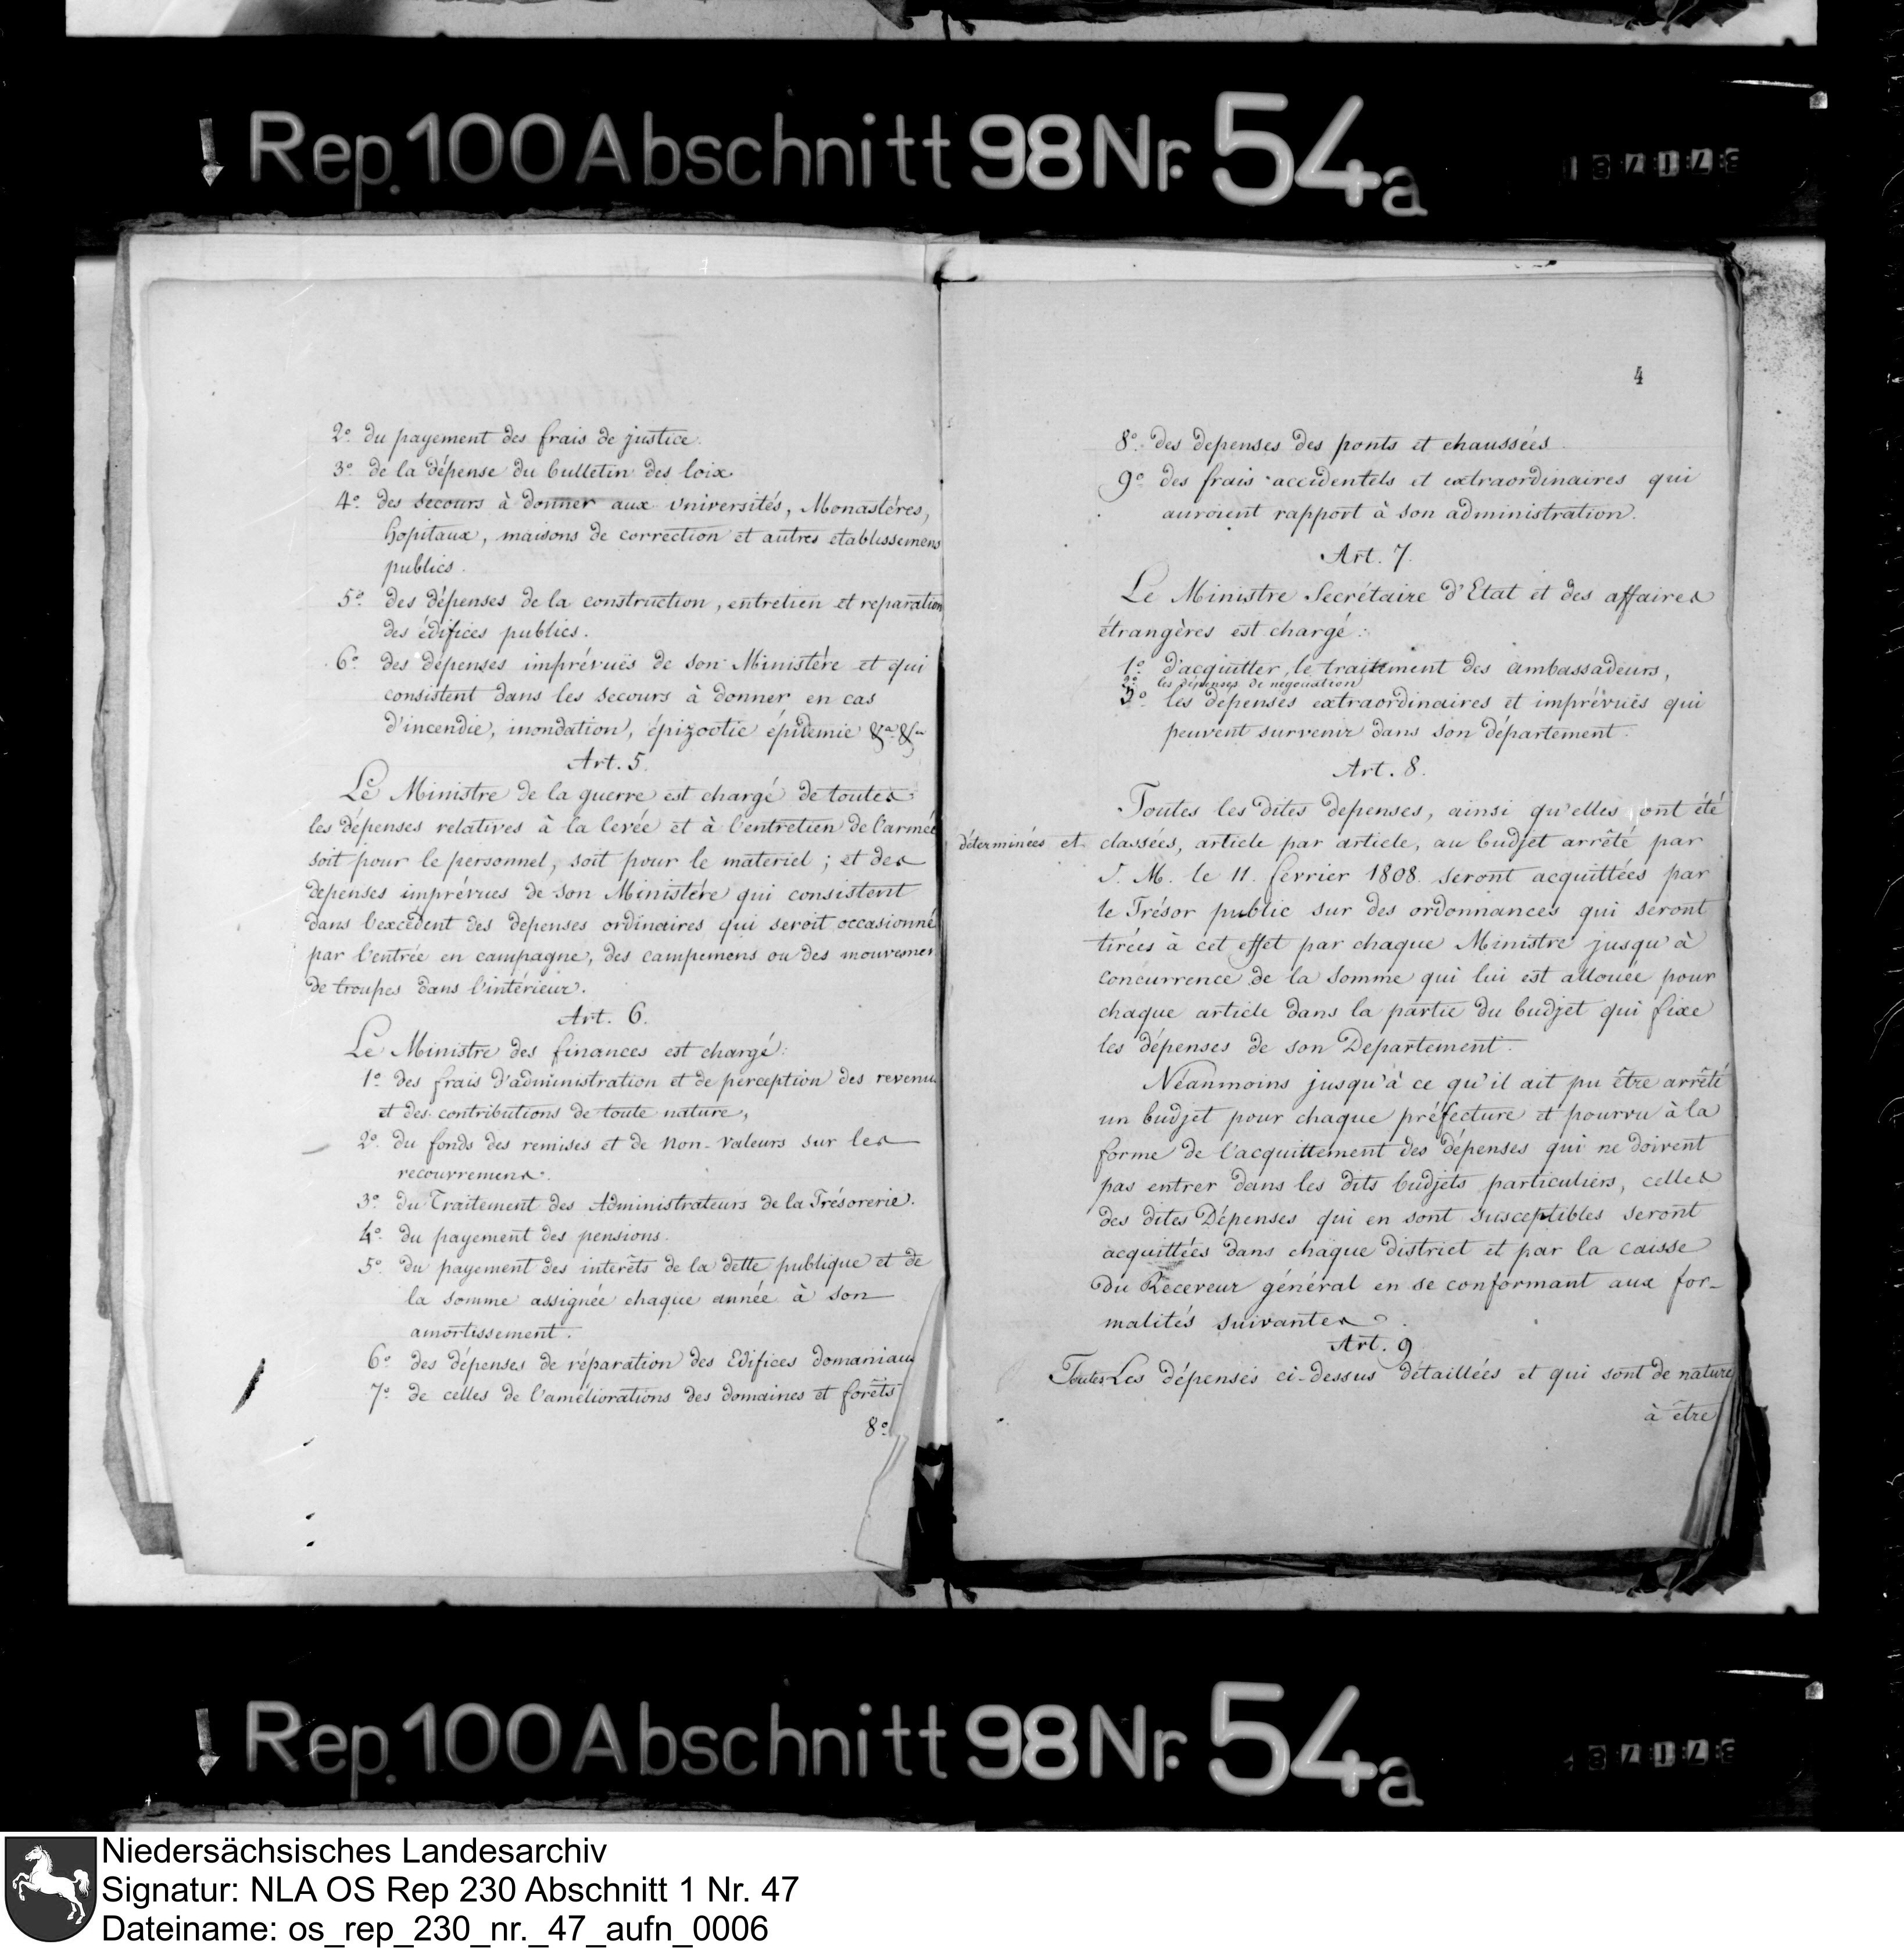 Rep. 100 Abschnitt 98 Nr. 54a
2.° du payement des frais de justice.
3.° de la dépense du bulletin des loix
4.° des secours à donner aux Universités, Monastéres,
hôpitaux, maisons de correction et autres etablissemens
publics.
5.° des dépenses de la construction, entretien et reparation
des édifices publics.
6.° des dépenses imprévuës de son Ministére et qui
consistent dans les secours à donner en cas
d'incendie, inondation, épizootie épidemie &ca &ca
Art. 5.
Le Ministre de la guerre est chargé de toutes
les dépenses relatives à la levée et à l'entretien de l'armée
soit pour le personnel, soit pour le materiel; et des
depenses imprévues de son Ministére qui consistent
dans l'excédent des depenses ordinaires qui seroit occasionné
par l'entrée en campagne, des campemens ou des mouvemens
de troupes dans l'intérieur.
Art. 6.
Le Ministre des finances est chargé:
1.° des frais d'administration et de perception des revenus
et des contributions de toute nature,
2.° du fonds des remises et de non-valeurs sur les
recouvremens.
3.° du Traitement des Administrateurs de la Trésorerie.
4.° du payement des pensions.
5.° du payement des interêts de la dette publique et de
la somme assignée chaque année à son
amortissement.
6.° des dépenses de réparation des Edifices domaniaux
7.° de celles de l'améliorations des domaines et forêts
8.°
4
8.° des depenses des ponts et chaussées.
9.° des frais accidentels et extraordinaires qui
auroient rapport à son administration.
Art. 7.
Le Ministre Secrétaire d'Etat et des affaires
étrangères est chargé:
1.° d'acquitter le traitement des ambassadeurs,
2.° les dépenses de negociation
3.° les dépenses extraordinaires et imprévuës qui
peuvent survenir dans son département.
Art. 8.
Toutes les dites depenses, ainsi qu'elles ont été
déterminées et classées, article par article, au budjet arrêté par
S. M. le 11. février 1808. seront acquittées par
le Trésor public sur des ordonnances qui seront
tirées à cet effet par chaque Ministre jusqu'à
concurrence de la somme qui lui est allouée pour
chaque article dans la partie du budjet qui fixe
les dépenses de son Departement.
Néanmoins jusqu'à ce qu'il ait pu être arrêté
un budjet pour chaque préfecture et pourvu à la
forme de l'acquittement des dépenses qui ne doivent
pas entrer dans les dits budjets particuliers, celles
des dites Dépenses qui en sont susceptibles seront
acquittées dans chaque district et par la caisse
du Receveur général en se conformant aux for-
malités suivantes.
Art. 9
Toutes Les dépenses ci-dessus détaillées et qui sont de nature
à être
Rep. 100 Abschnitt 98 Nr. 54a
Niedersächsisches Landesarchiv
Signatur: NLA OS Rep 230 Abschnitt 1 Nr. 47
Dateiname: os_rep_230_nr._47_aufn_0006